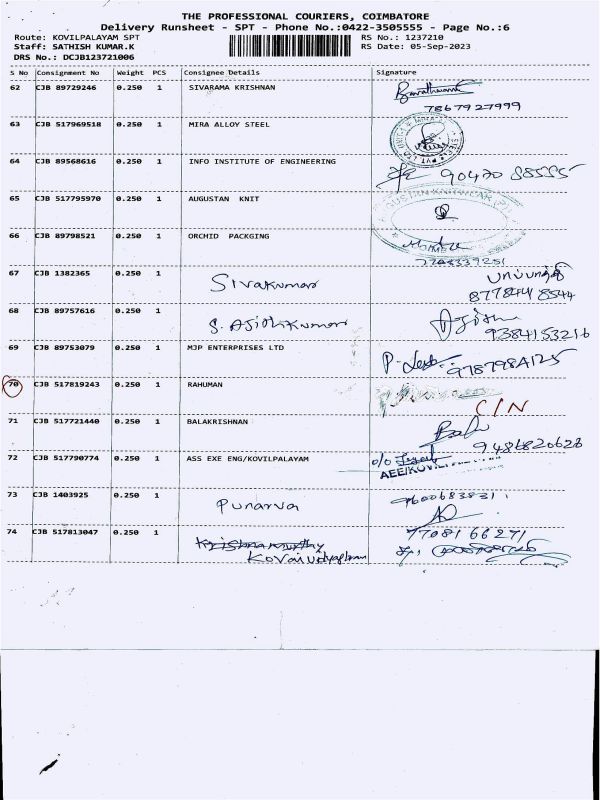 THE PROFESSIONAL COURIERS, COIMBATORE
Delivery Runsheet - SPT - Phone No.:0422-3505555 - Page No.:6
Route: KOVILPALAYAM SPT RS No.: 1237210
Staff: SATHISH KUMAR.K RS Date: 05-Sep-2023
DRS No.: DCJB123721006
S No Consignment No Weight PCS Consignee Details Signature
62 CJB 89729246 0.250 1 SIVARAMA KRISHNAN
7867927999
63 CJB 517969518 0.250 1 MIRA ALLOY STEEL
64 CJB 89568616 0.250 1 INFO INSTITUTE OF ENGINEERING
90470 88555
65 CJB 517795970 0.250 1 AUGUSTAN KNIT
66 CJB 89798521 0.250 1 ORCHID PACKGING
7708339251
67 CJB 1382365 0.250 1 Sivakumar
8778441 8544
68 CJB 89757616 0.250 1 S. Ajithkumar
9384153216
69 CJB 89753079 0.250 1 MJP ENTERPRISES LTD
70 CJB 517819243 0.250 1 RAHUMAN
C/N
71 CJB 517721440 0.250 1 BALAKRISHNAN Balu
9486820628
72 CJB 517790774 0.250 1 ASS EXE ENG/KOVILPALAYAM
73 CJB 1403925 0.250 1 Punarva 9600683831
74 CJB 517813047 0.250 1 77081 66271
Kovai Vidyashram